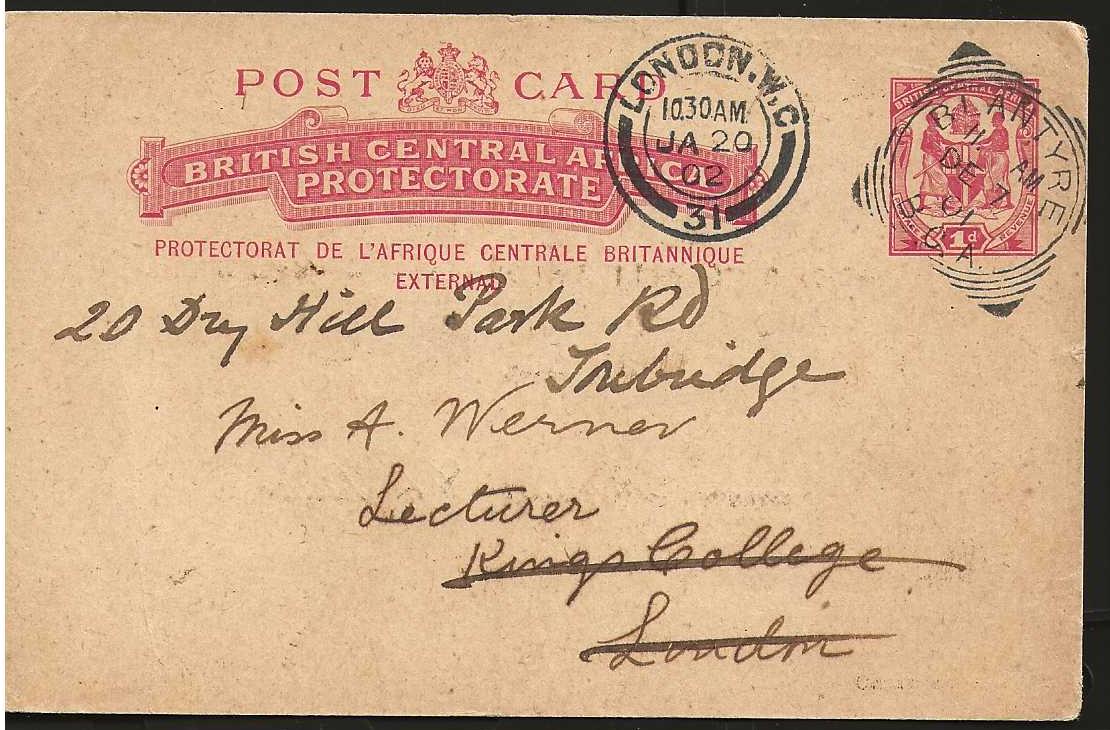 POST CARD
BRITISH CENTRAL AFRICA
PROTECTORATE
PROTECTORAT DE L'AFRIQUE CENTRALE BRITANNIQUE
EXTERNAL
LONDON.W.C
10.30AM
JA 20
02
31
BRITISH CENTRAL AFRICA
1d
REVENUE
BLANTYRE
11 AM
DE 7
01
B.C.A.
20 Dry Hill Park Rd
Tnbridge
Miss A. Werner
Lecturer
Kings College
London